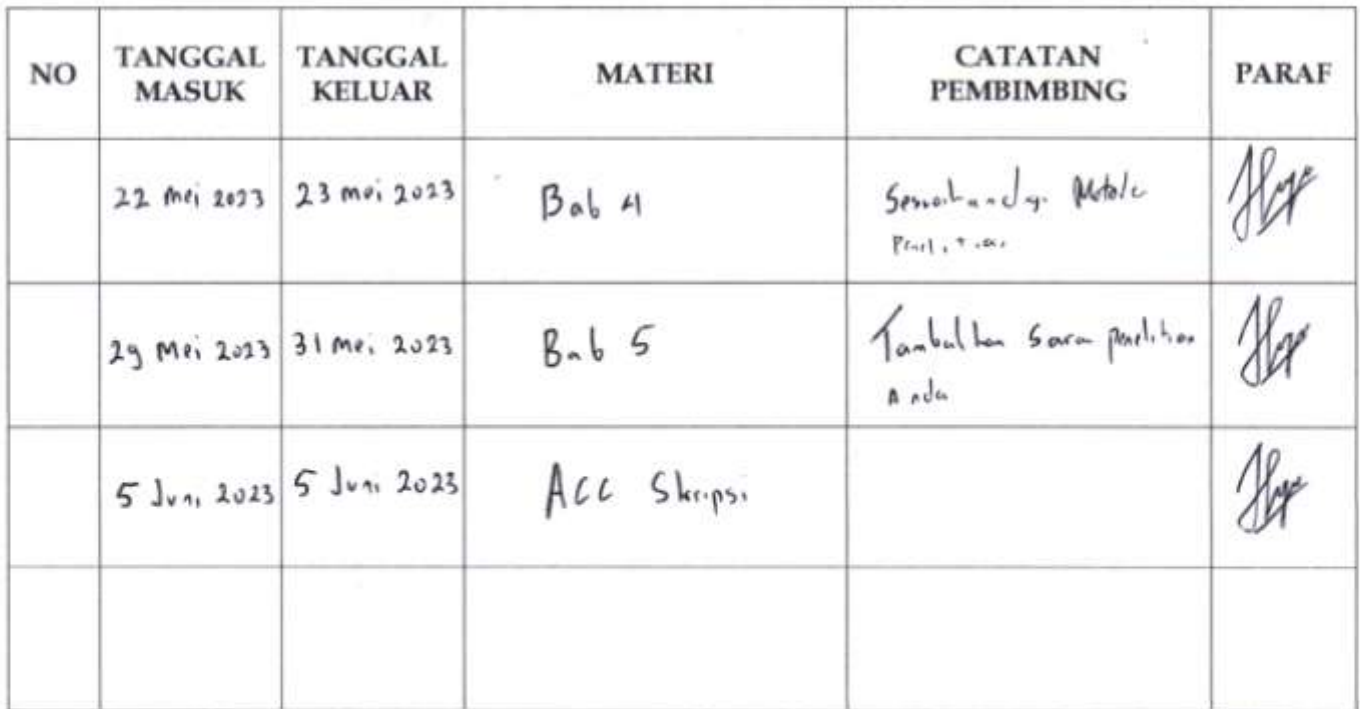 NO TANGGAL MASUK TANGGAL KELUAR MATERI CATATAN PEMBIMBING PARAF
22 Mei 2023 23 Mei 2023 Bab 4 Sesuaikan dg. Metode
Penelitian
29 Mei 2023 31 Mei 2023 Bab 5 Tambahkan Saran penelitian
Anda
5 Juni 2023 5 Juni 2023 ACC Skripsi